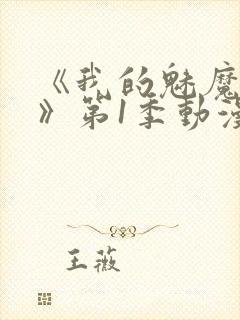 《我的魅魔
》第1季動漫
王薇